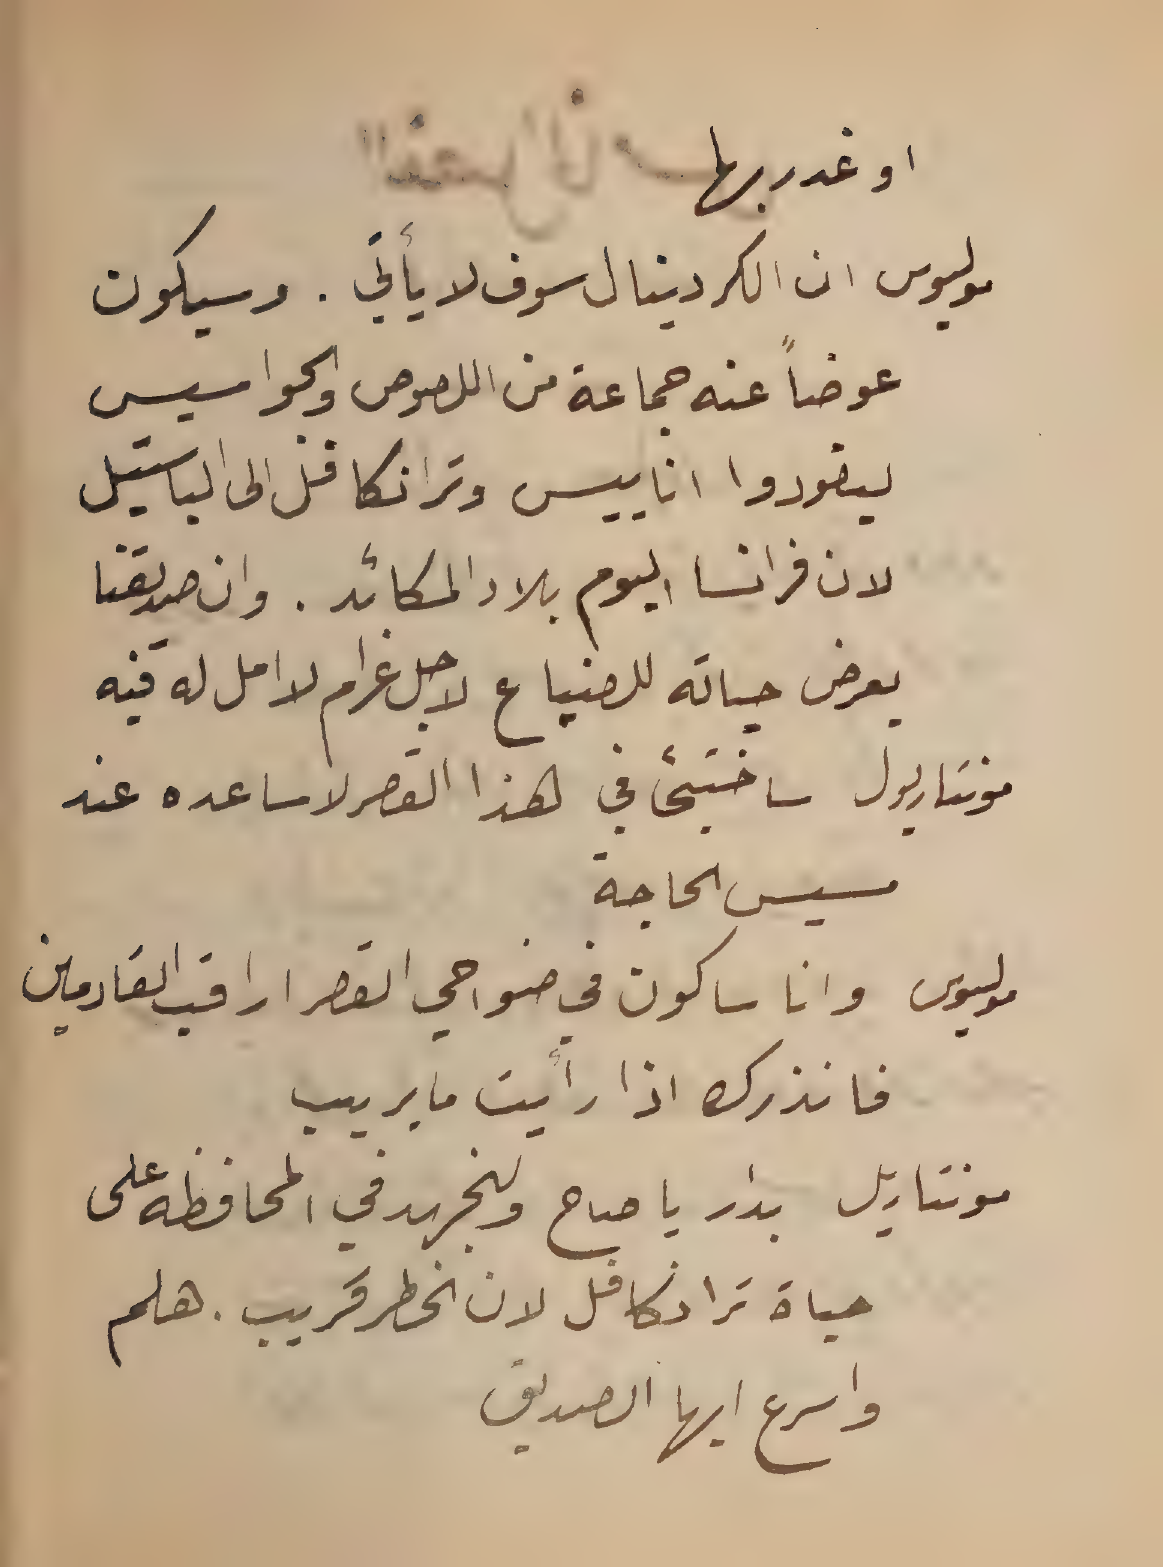 او غدر بها
موليوس ان الكردينال سوف لا يأتي . وسيكون
عوضاً عنه جماعة من اللصوص والجواسيس
ليقودوا اناييس وترانكافل الى الباستيل
لان فرانسا اليوم بلاد المكائد . وان صديقنا
يعرض حياته للضياع لاجل غرام لا امل له فيه
مونتاريول ساختبئ في هذا القصر لاساعده عند
مسيس الحاجة
موليوس وانا ساكون في ضواحي القصر اراقب القادمين
فانذرك اذا رأيت ما يريب
مونتاريل بدار يا صاح ولنجهد في المحافظه على
حياة ترانكافل لان الخطر قريب . هلم
واسرع ايها الصديق